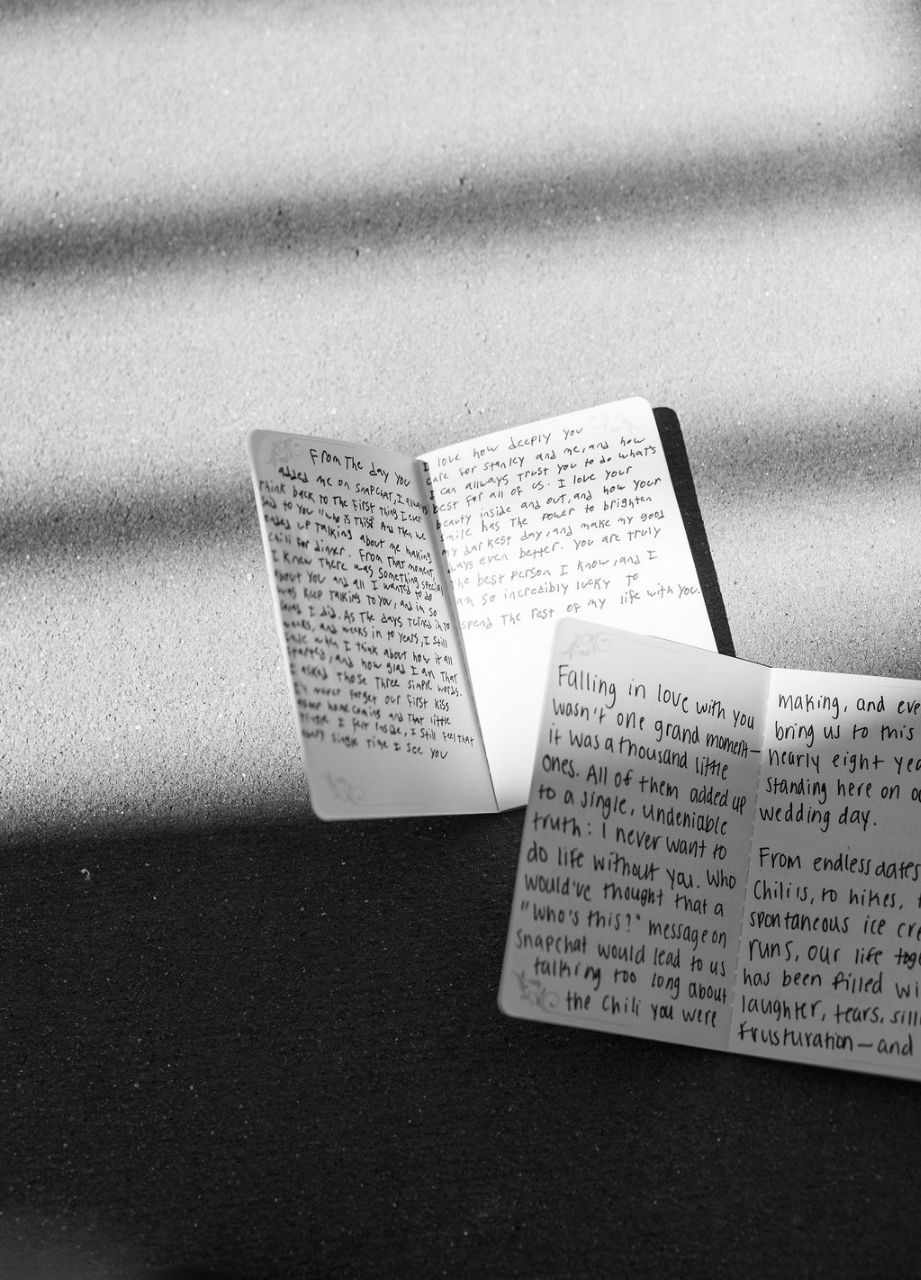 From The day you
added me on snapchat, I always
Think back to The first Thing I ever
said to you "who is This?" And Then we
ended up Talking about me making
chili for dinner. From That moment
I knew There was something special
about you and all I wanted to do
was keep Talking to you, and in so
I did. As The days Turned in to
weeks, and weeks in to years, I still
smile when I think about how it all
started, and how glad I am That
I asked Those Three simple words.
I'll never forget our first kiss
homecoming and That little
I felt inside, I still feel that
every single Time I see you
I love how deeply you
care for Stanley and me, and how
I can allways Trust you to do what's
best for all of us. I love your
beauty inside and out, and how your
smile has The power to brighten
my darkest day, and make my good
days even better. You are truly
the best person I know, and I
am so incredibly lucky to
spend The rest of my life with you.
Falling in love with you
wasn't one grand moment—
it was a thousand little
ones. All of them added up
to a single, undeniable
truth: I never want to
do life without you. Who
would've thought that a
"Who's this?" message on
Snapchat would lead to us
talking too long about
the Chili you were
making, and eve
bring us to this
nearly eight yea
standing here on o
wedding day.
From endless dates
Chili's, to hikes, t
spontaneous ice cre
runs, our life tog
has been filled wi
laughter, tears, sill
frusturation—and